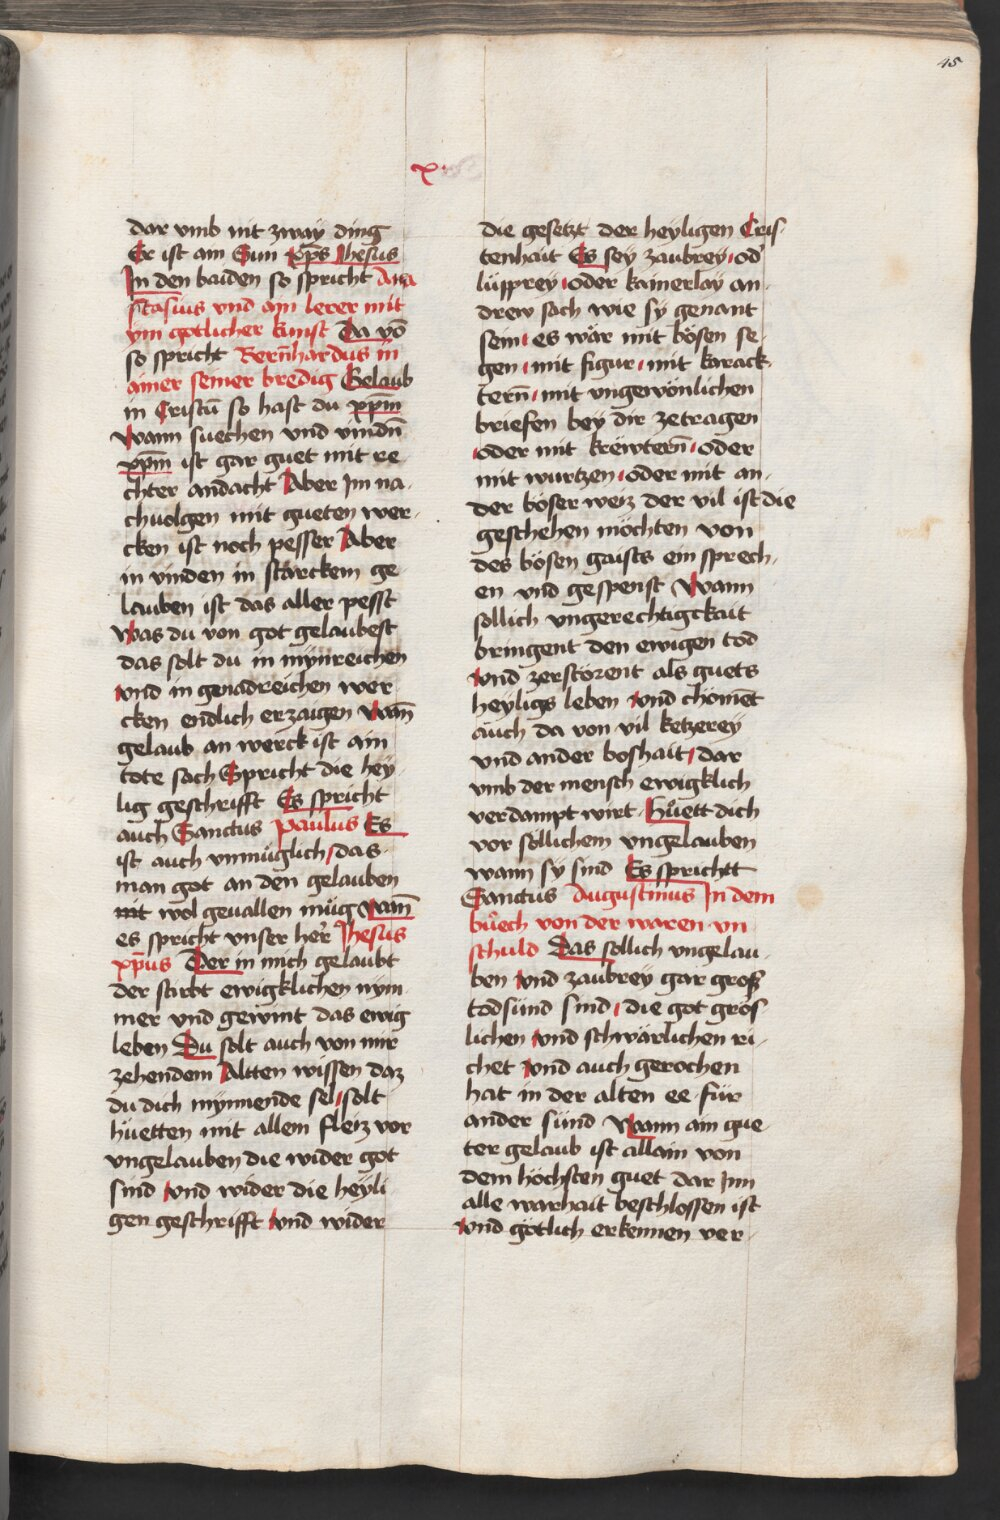 45
x
dar vmb nit zwaÿ ding
Er ist ain Sun xp̄s Jhesus
In den baiden so spricht Ana
stasius vnd ain lerer mit
ÿm gotlicher kunst Da vō
so spricht Bern̄hardus in
ainer seiner bredig Gelaub
in Cristū so hast du xpm̄
Wann suechen vnd vindn̄
xpm̄ ist gar guet mit re
chter andacht Aber Im na
chuolgen mit gueten wer
cken ist noch pesser Aber
in vinden in starckem ge
lauben ist das aller pesst
Was du von got gelaubest
das solt du in mÿnreichen
vnd in genadreichen wer
cken endlich erzaigen wan̄
gelaub an werck ist ain
tote sach Spricht die hey
lig geschrifft Es spricht
auch Sanctus paulus Es
ist auch vnmüglich das
man got an den gelauben
nit wol geuallen müg wan̄
es spricht vnser her̄ Jhesus
xp̄us Der in mich gelaubt
der stirbt ewigklichen nÿm
mer vnd gewint das ewig
leben Du solt auch von mir
zehendem Altten wissen daz
du dich mÿnnende sel solt
hüetten mit allem fleiz vor
vngelauben die wider got
sind vnd wider die heÿli
gen geschrifft vnd wider
die gesetzt der heÿligen Cris
tenhait Es seÿ zaubreÿ od̓
lüpprey oder kainerlaÿ an
drew sach wie sÿ genant
sein es wär mit bösen se
gen mit figur mit karack
tern̄ mit vngewönlichen
briefen beÿ dir zetragen
oder mit krëwtern̄ oder
mit wurtzen oder mit an
der böser weiz der vil ist die
geschehen möchten von
des bösen gaists ein sprech
en vnd gespenst Wann
sollich vngerechtigckait
bringent den ewigen tod
vnd zerstörent als guets
heÿligs leben vnd chömēt
auch da von vil ketzereÿ
vnd ander boshait dar
vmb der mensch ewigklich
verdampt wirt Hüett dich
vor söllichem vngelauben
wann sÿ sind Es sprichtt
Sanctus Augustinus In dem
bůech von der waren vn
schuld Das sollich vngelau
ben vnd zaubreÿ gar groß
todsünd sind die got grös
lichen vnd schwärlichen ri
chet vnd auch gerochen
hat in der alten ee für
ander sünd Wann ain gue
ter gelaub ist allain von
dem höchsten guet dar Inn
alle warhait beschlossen ist
vnd götlich erkennen ver